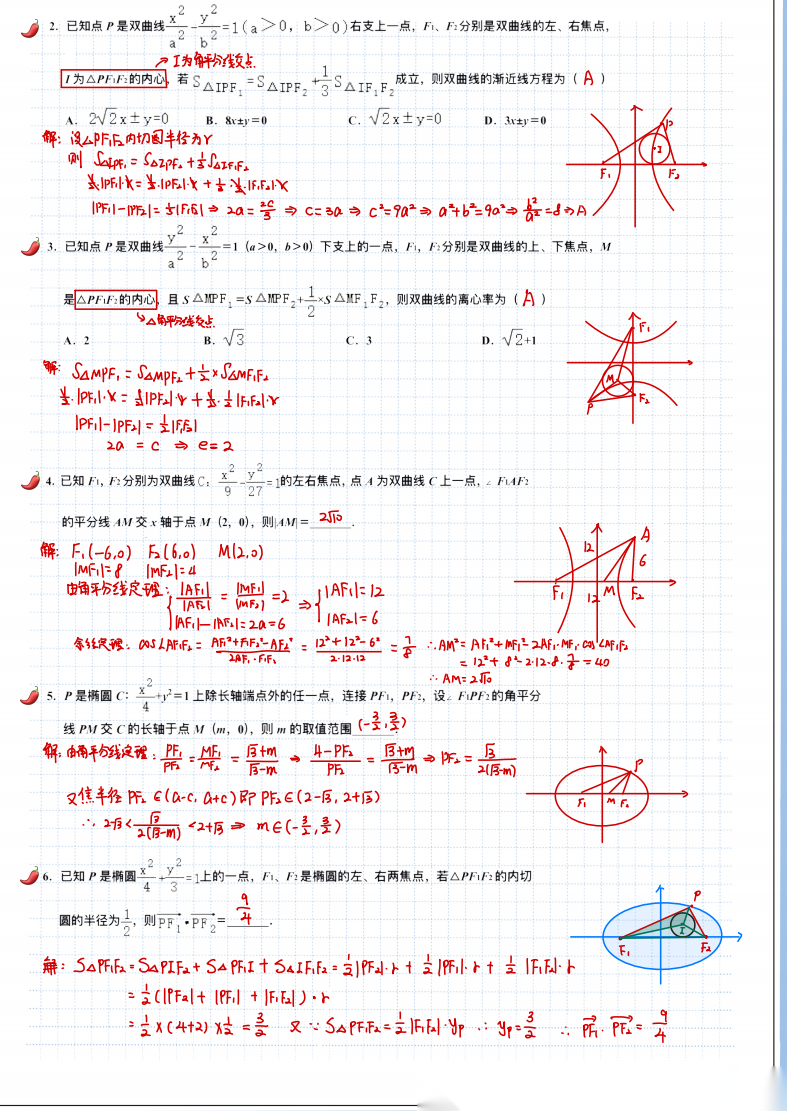 2. 已知点 P 是双曲线 x²/a² - y²/b² =1(a>0，b>0)右支上一点，F₁、F₂分别是双曲线的左、右焦点，
I为角平分线交点
I 为△PF₁F₂的内心，若 S△IPF₁ =S△IPF₂ +1/3 S△IF₁F₂ 成立，则双曲线的渐近线方程为（ A ）
A. 2√2x±y=0 B. 8x±y=0 C. √2x±y=0 D. 3x±y=0
解：设△PF₁F₂内切圆半径为r
则 S△IPF₁ = S△IPF₂ + 1/3 S△IF₁F₂
1/2·|PF₁|·r = 1/2·|PF₂|·r + 1/3·1/2·|F₁F₂|·r
|PF₁|-|PF₂| = 1/3|F₁F₂| ⇒ 2a = 2c/3 ⇒ c=3a ⇒ c²=9a² ⇒ a²+b²=9a² ⇒ b²/a²=8 ⇒ A
P
I
F₁ F₂
3. 已知点 P 是双曲线 y²/a² - x²/b² =1（a>0，b>0）下支上的一点，F₁，F₂分别是双曲线的上、下焦点，M
是△PF₁F₂的内心，且 S△MPF₁ =S△MPF₂+1/2×S△MF₁F₂，则双曲线的离心率为（ A ）
△角平分线交点
A. 2 B. √3 C. 3 D. √2+1
解：S△MPF₁ = S△MPF₂ + 1/2×S△MF₁F₂
1/2·|PF₁|·r = 1/2|PF₂|·r + 1/2·1/2|F₁F₂|·r
|PF₁|-|PF₂| = 1/2|F₁F₂|
2a = c ⇒ e=2
F₁
M
P F₂
4. 已知 F₁，F₂分别为双曲线C: x²/9 - y²/27 =1的左右焦点，点 A 为双曲线 C 上一点，∠F₁AF₂
的平分线 AM 交 x 轴于点 M（2，0），则|AM|= 2√10 .
解：F₁(-6,0) F₂(6,0) M(2,0)
|MF₁|=8 |MF₂|=4
由角平分线定理：{ |AF₁|/|AF₂| = |MF₁|/|MF₂| =2 ⇒ { |AF₁|=12
|AF₁|-|AF₂|=2a=6 |AF₂|=6
余弦定理：cos∠AF₁F₂ = AF₁²+F₁F₂²-AF₂²/2AF₁·F₁F₂ = 12²+12²-6²/2·12·12 = 7/8 ∴AM²=AF₁²+MF₁²-2AF₁·MF₁·cos∠AF₁F₂
= 12²+8²-2·12·8·7/8 = 40
∴AM=2√10
A
12
6
F₁ 12 M F₂
5. P 是椭圆 C: x²/4+y²=1 上除长轴端点外的任一点，连接 PF₁，PF₂，设∠F₁PF₂的角平分
线 PM 交 C 的长轴于点 M（m，0），则 m 的取值范围 (-3/2,3/2) .
解：由角平分线定理：PF₁/PF₂ = MF₁/MF₂ = √3+m/√3-m ⇒ 4-PF₂/PF₂ = √3+m/√3-m ⇒ PF₂ = √3/2(√3-m)
又焦半径 PF₂∈(a-c, a+c)即 PF₂∈(2-√3, 2+√3)
∴ 2-√3 < √3/2(√3-m) <2+√3 ⇒ m∈(-3/2,3/2)
P
F₁ M F₂
6. 已知 P 是椭圆 x²/4 + y²/3 =1上的一点，F₁、F₂是椭圆的左、右两焦点，若△PF₁F₂的内切
圆的半径为1/2，则PF₁·PF₂= 9/4 .
解：S△PF₁F₂=S△PIF₂+S△PF₁I+S△IF₁F₂=1/2|PF₂|·r+1/2|PF₁|·r+1/2|F₁F₂|·r
= 1/2(|PF₂|+|PF₁|+|F₁F₂|)·r
= 1/2×(4+2)×1/2 = 3/2 又∵S△PF₁F₂=1/2|F₁F₂|·yP ∴yP=3/2 ∴PF₁·PF₂=9/4
P
I
F₁ F₂